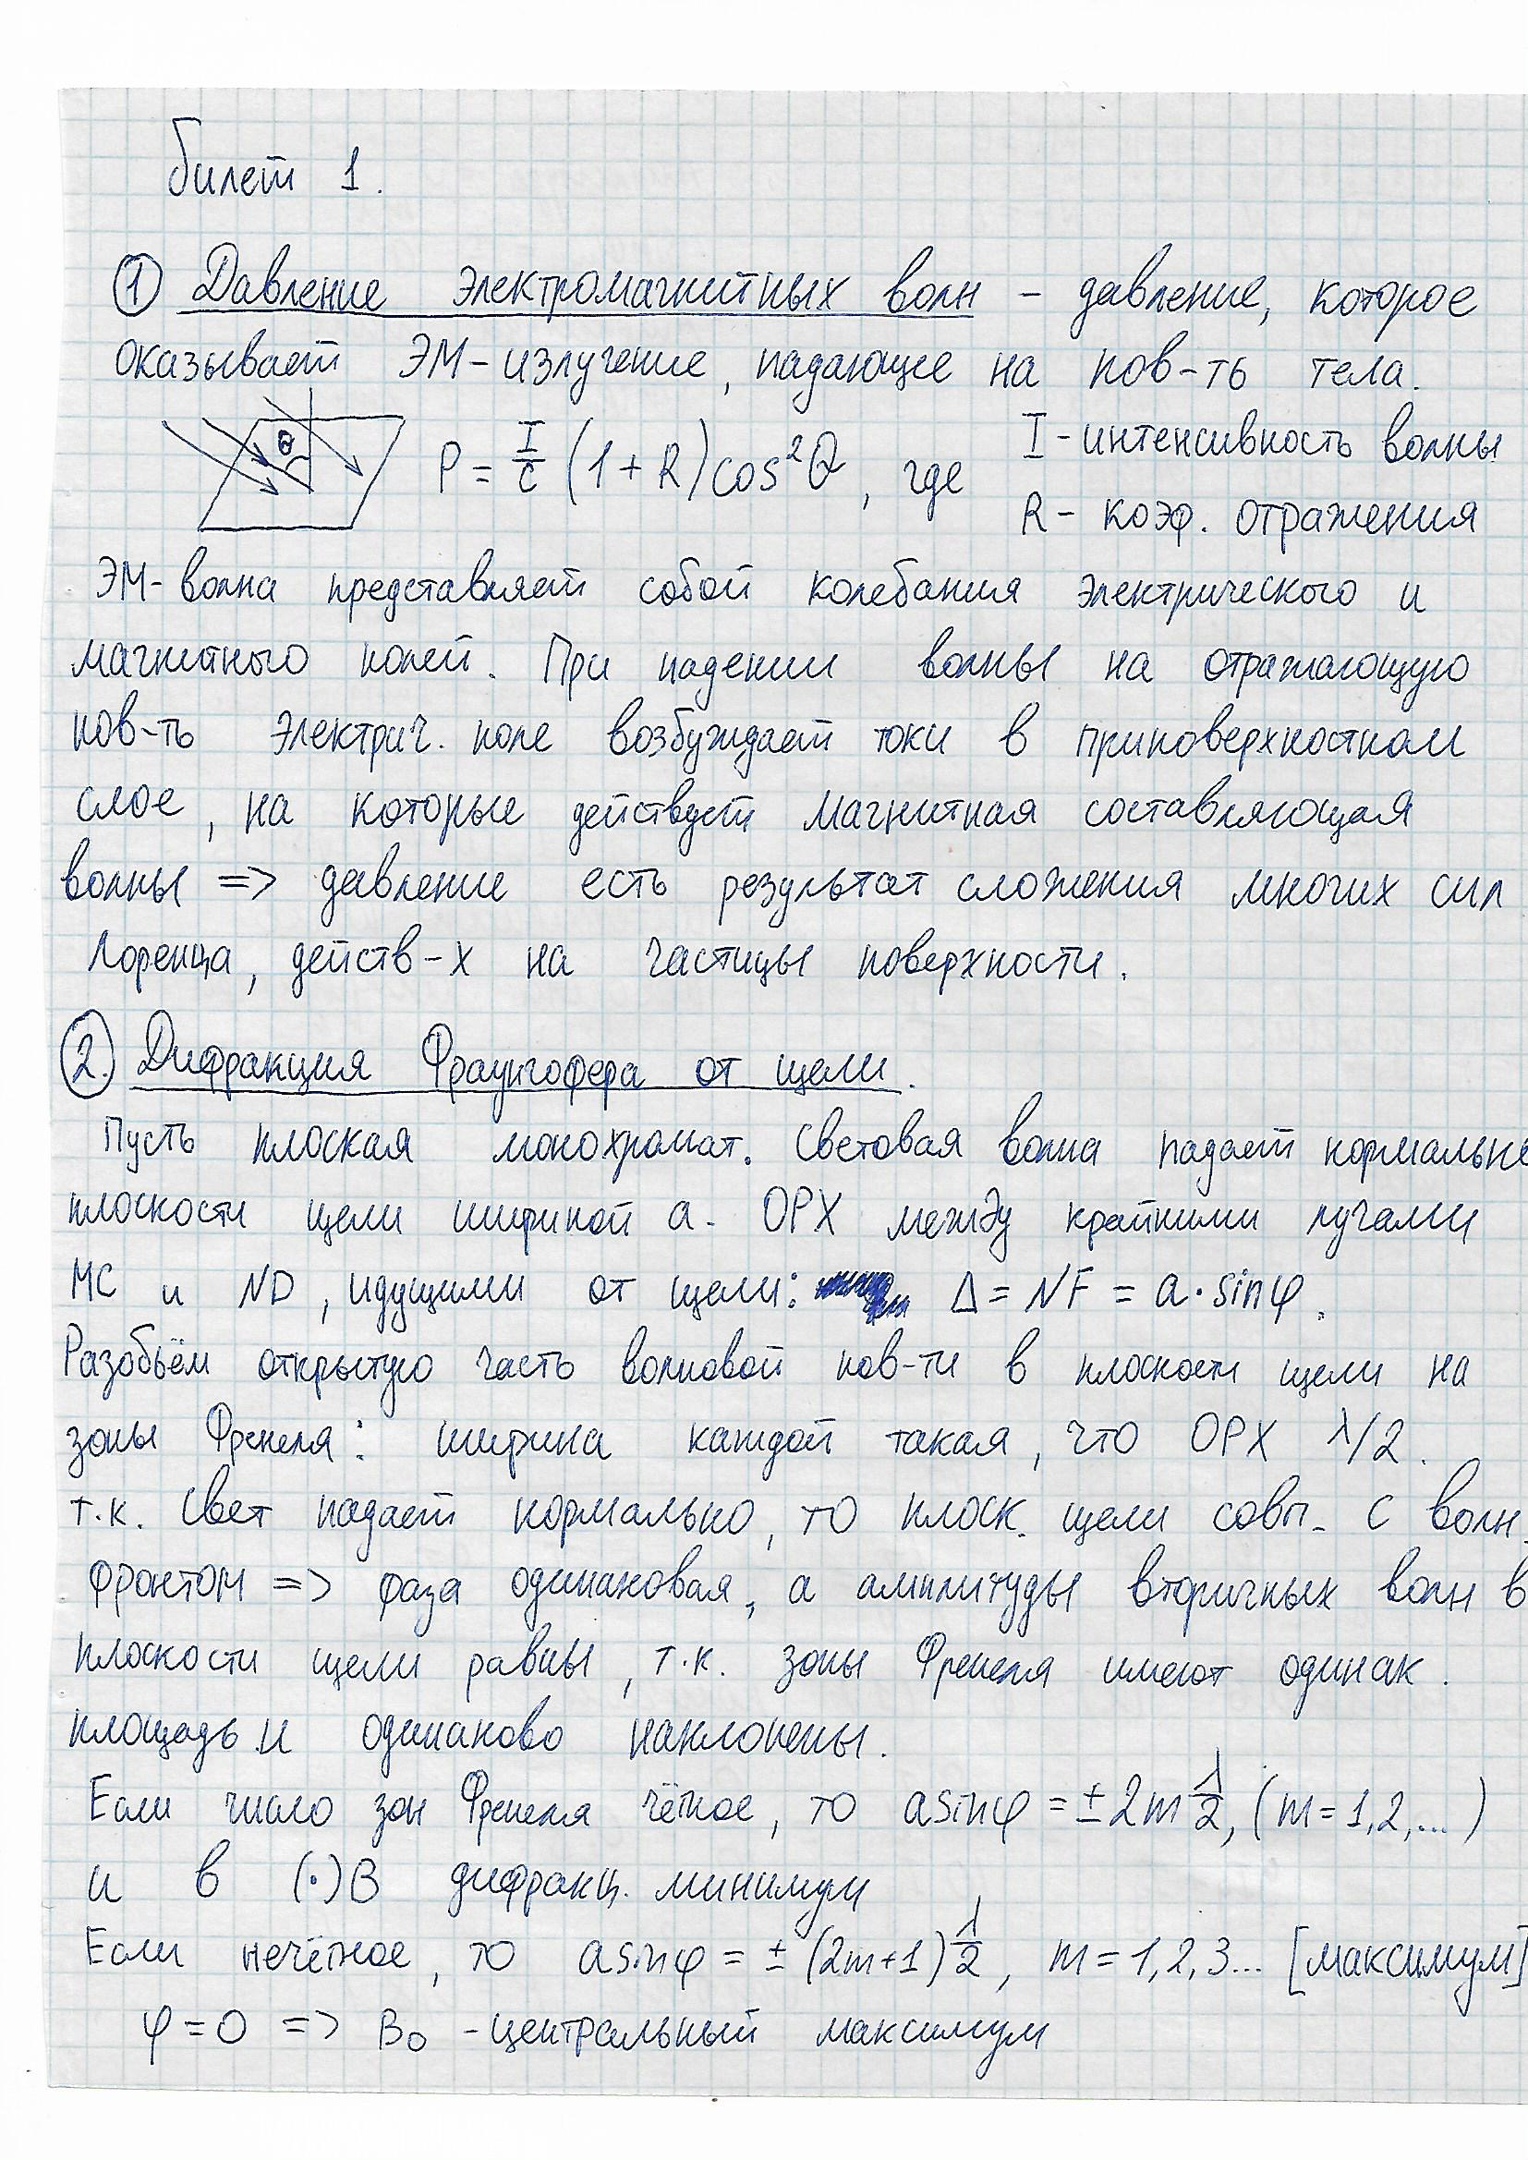 билет 1.
① Давление электромагнитных волн - давление, которое
оказывает ЭМ-излучение, падающее на пов-ть тела.
θ P = I/c (1+R)cos²θ, где I - интенсивность волны
R - коэф. отражения
ЭМ-волна представляет собой колебания электрического и
магнитного полей. При падении волны на отражающую
пов-ть электрич. поле возбуждает токи в приповерхностном
слое, на которые действует магнитная составляющая
волны => давление есть результат сложения многих сил
Лоренца, действ-х на частицы поверхности.
②. Дифракция Фраунгофера от щели.
Пусть плоская монохромат. световая волна падает нормально
плоскости щели шириной a. ОРХ между крайними лучами
MC и ND, идущими от щели: Δ = NF = a·sinφ.
Разобьём открытую часть волновой пов-ти в плоскости щели на
зоны Френеля: ширина каждой такая, что ОРХ λ/2.
т.к. свет падает нормально, то плоск. щели совп. с волн.
фронтом => фаза одинаковая, а амплитуды вторичных волн в
плоскости щели равны, т.к. зоны Френеля имеют одинак.
площадь и одинаково наклонены.
Если число зон Френеля чётное, то asinφ = ±2m λ/2, (m=1,2,...)
и в (·)B дифракц. минимум
Если нечётное, то asinφ = ± (2m+1) λ/2, m = 1,2,3... [максимум]
φ=0 => B₀ - центральный максимум